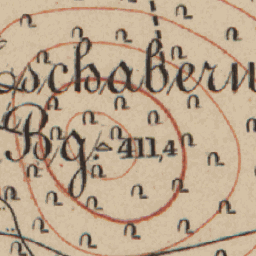 Eschabern
Bg. 411,4